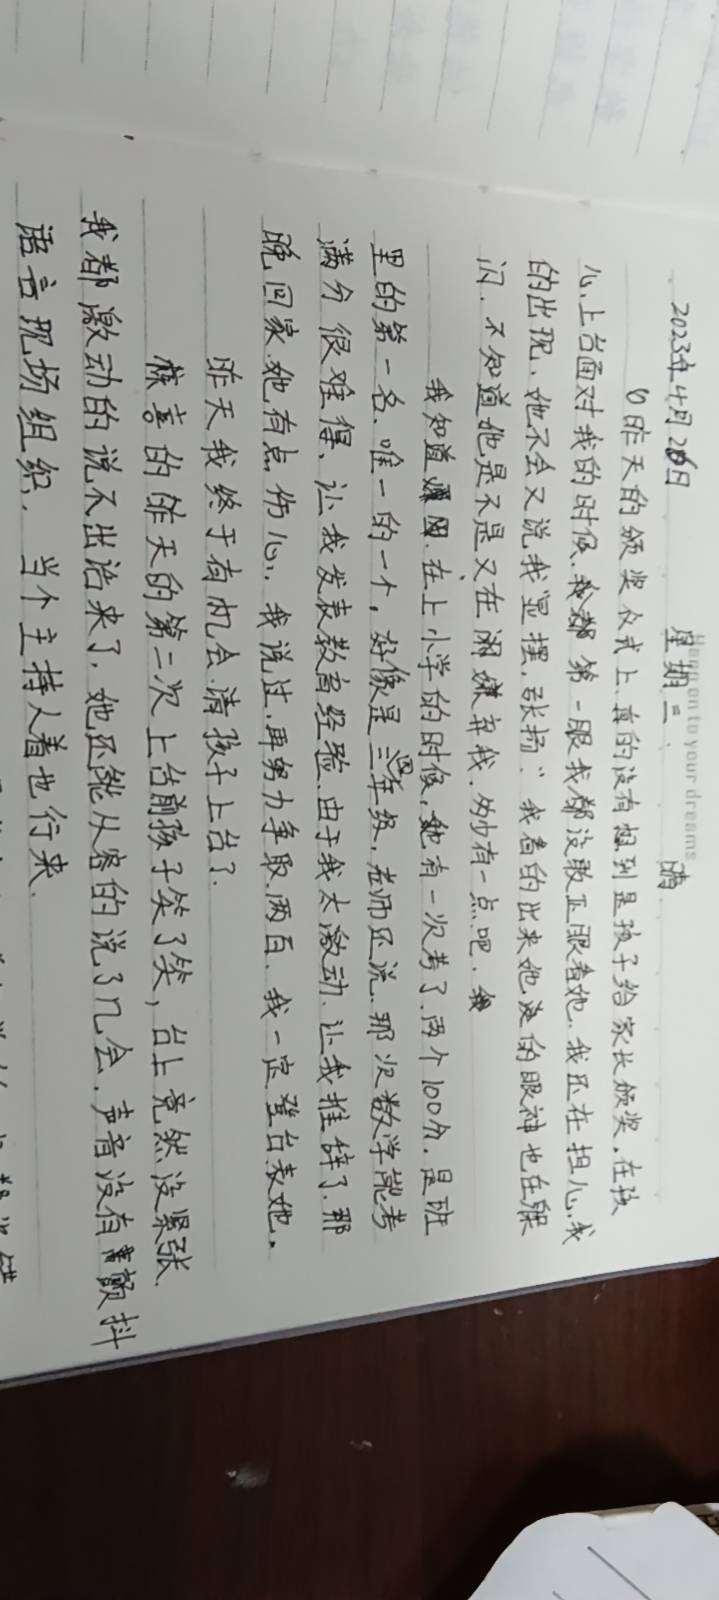 Hang on to your dreams
2023年4月26日 星期三. 晴
昨天的颁奖仪式上、真的没有想到是孩子给家长颁奖、在孩
心、上台面对我的时候、我都第一眼我都没敢正眼看她、我还在担心、我
的出现、她不会又说我显摆、张扬、我看的出来她没的眼神也在躲
闪、不知道她是不是又在嫌弃我、多少有一点吧、
我知道 在上小学的时候，她有一次考了两个100分、是班
里的第一名、唯一的一个，好像是三四年级，老师还说、那次数学能考
满分很难得、让我发表教育经验、由于我太激动、让我推辞了、那
晚回家她有点伤心、我说过、再努力争取两百、我一定登台表她、
昨天我终于有机会请孩子上台了、
惊喜的昨天的第二次上台前孩子笑了笑，台上竟然没紧张、
我都激动的说不出话来了、她还能从容的说了几会、声音没有颤抖
语言现场组织、当个主持人看也行来、